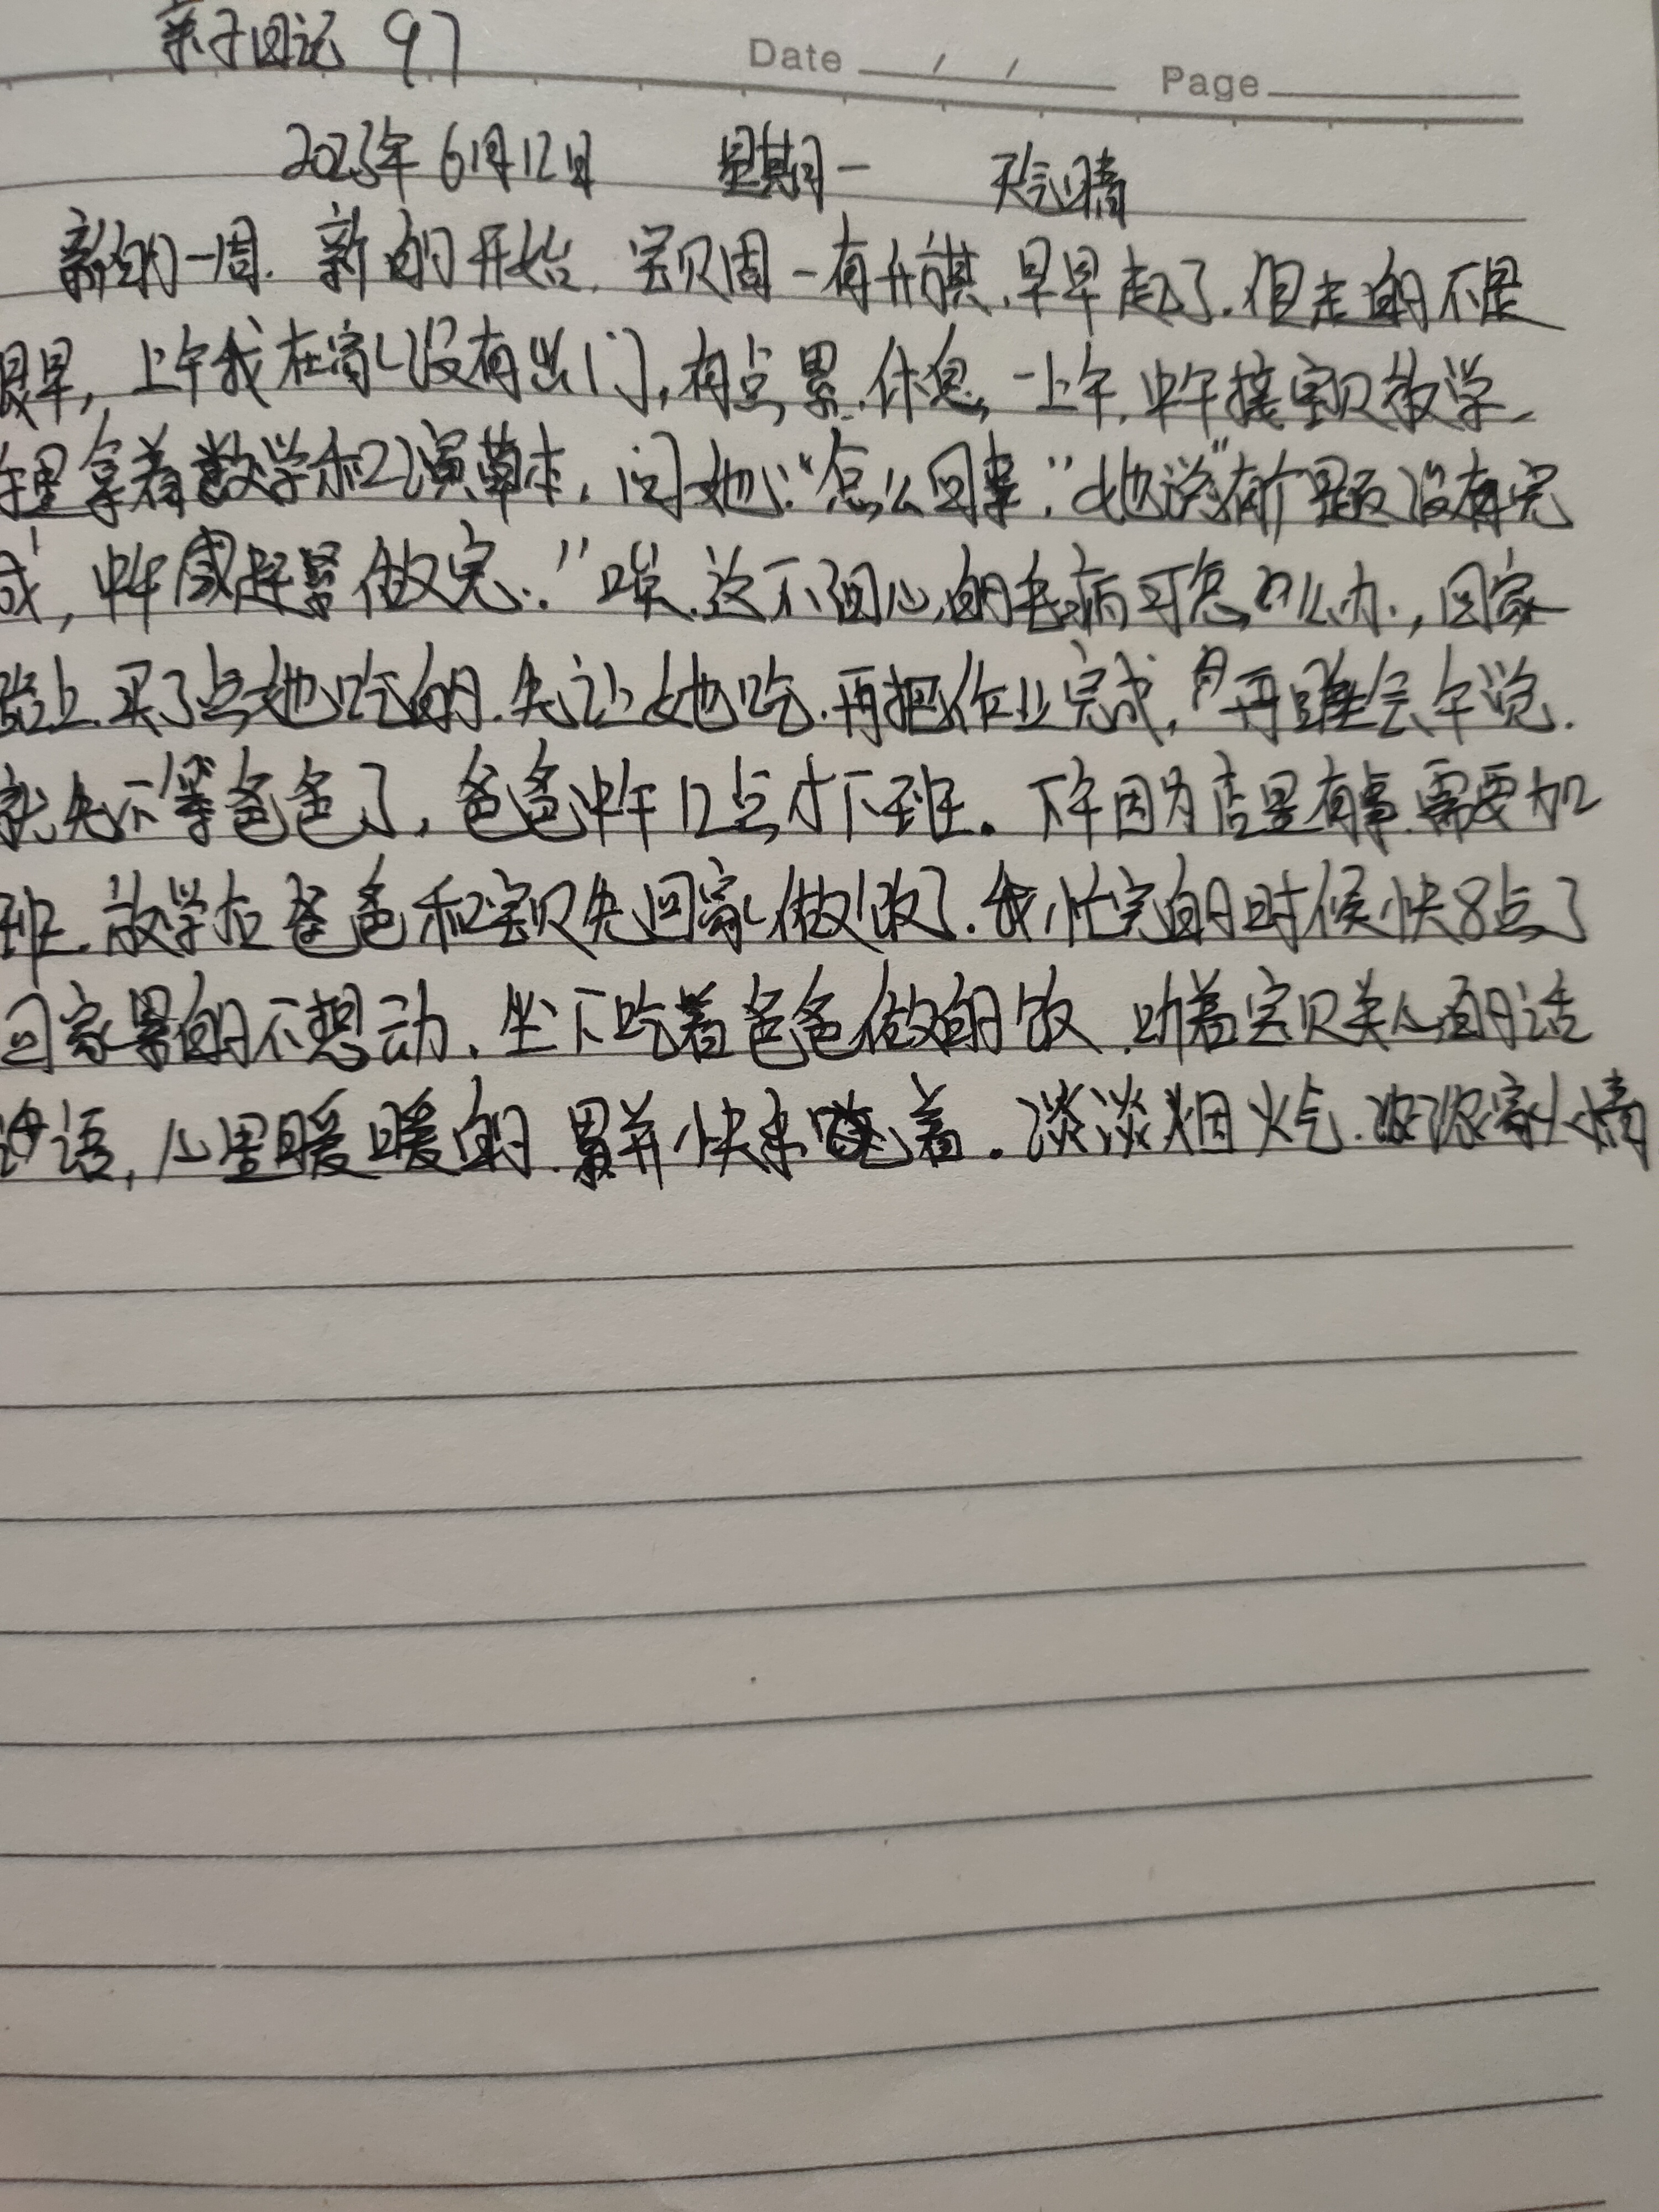 亲子日记 97
Date / / Page
2023年6月12日 星期一 天气晴
新的一周.新的开始.宝贝周一有升旗.早早起了.但走的不是
很早,上午我在家没有出门,有点累.休息一上午.中午接宝贝放学.
手里拿着数学和演草本.问她:“怎么回事.”她说“有个题没有完
成,中午赶紧做完.”唉.这不细心的毛病可怎么办.,回家
路上.买了点她吃的.先让她吃.再把作业完成,再睡会午觉.
就先不等爸爸了,爸爸中午12点才下班。下午因为店里有事.需要加
班.放学后爸爸和宝贝先回家做饭了.我忙完的时候快8点了
回家累的不想动.坐下吃着爸爸做的饭.听着宝贝关心的话
语,心里暖暖的.累并快乐着.淡淡烟火气.浓浓家人情